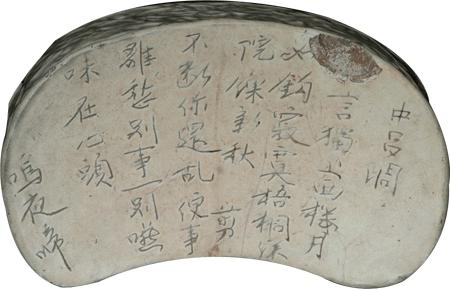 中呂調
言獨上西樓月
如鈎寂寞梧桐深
院鎖新秋 剪
不斷你還乱便事
離愁別事一別
味在心頭
嗚夜啼